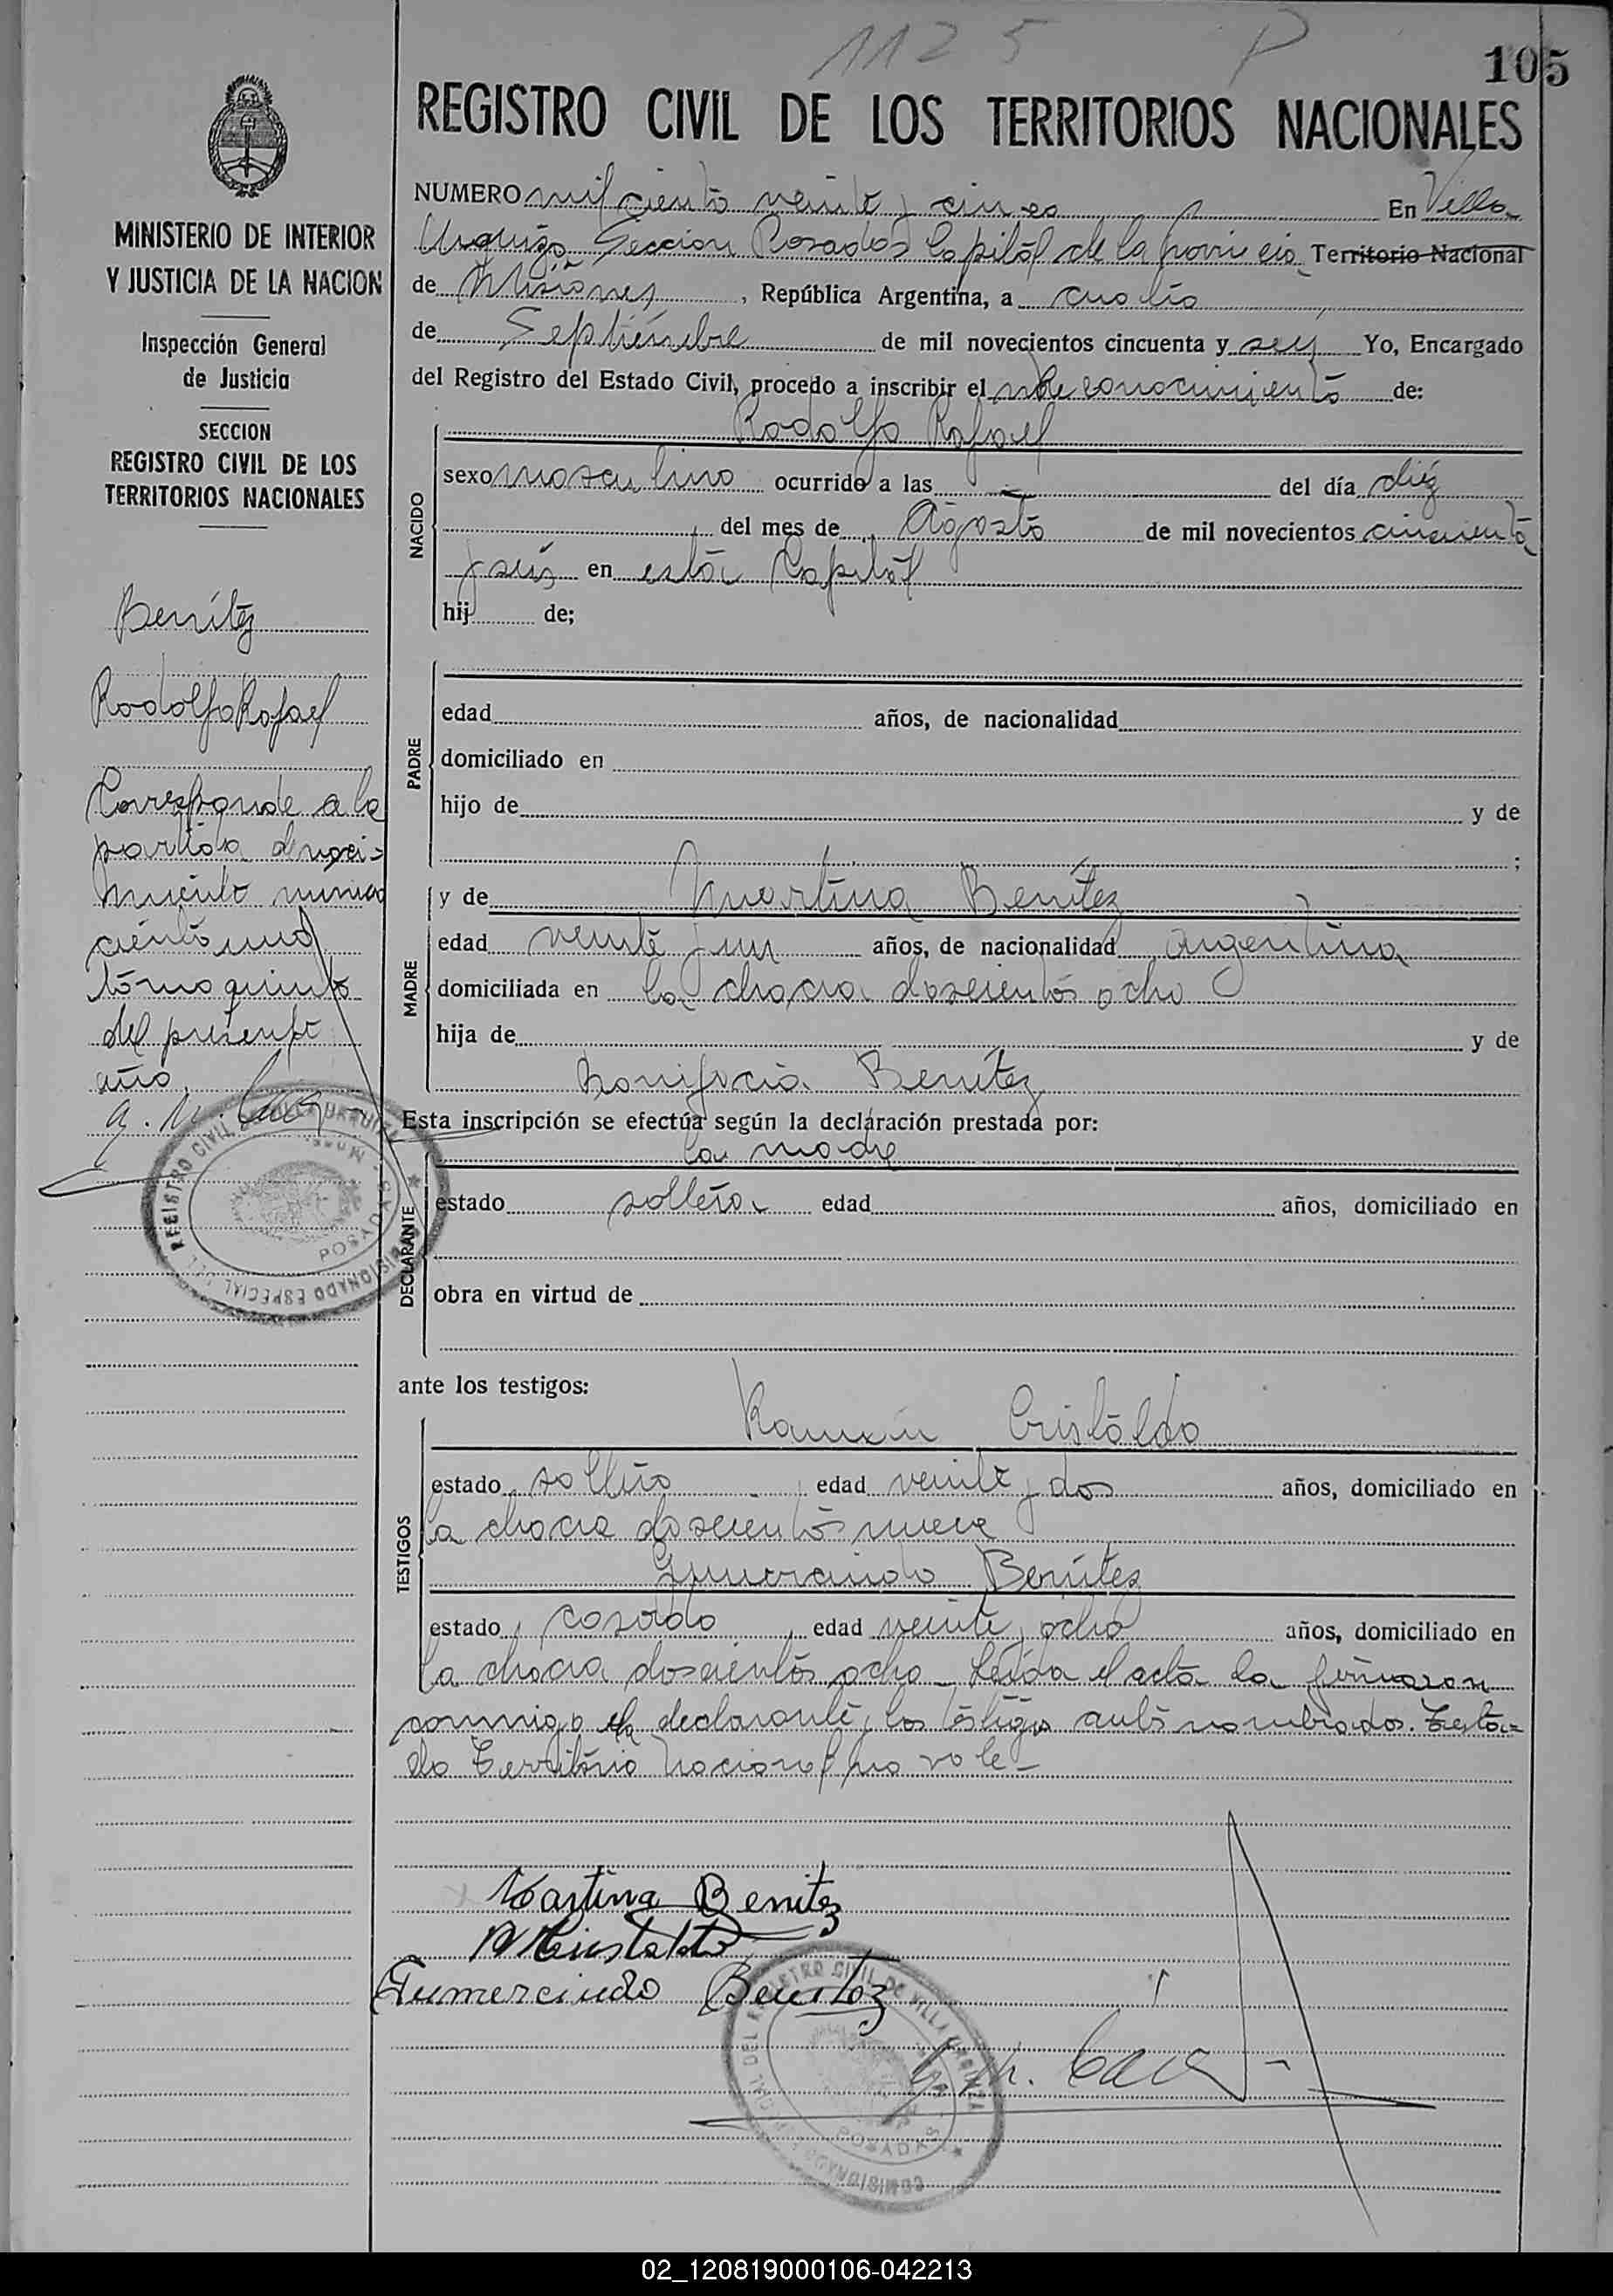 1125 P
105
REGISTRO CIVIL DE LOS TERRITORIOS NACIONALES
MINISTERIO DE INTERIOR
Y JUSTICIA DE LA NACION
Inspección General
de Justicia
SECCION
REGISTRO CIVIL DE LOS
TERRITORIOS NACIONALES
Benítez
Rodolfo Rafael
Corresponde a la
partida de naci-
miento número
ciento uno
tomo quinto
del presente
año.
NUMERO mil ciento veinte y cinco En Villa
Urquiza Seccion Posadas Capital de la provincia Territorio Nacional
de Misiones, República Argentina, a cuatro
de Septiembre de mil novecientos cincuenta y seis Yo, Encargado
del Registro del Estado Civil, procedo a inscribir el reconocimiento de:
Rodolfo Rafael
NACIDO
sexo masculino ocurrido a las — del día diez
del mes de Agosto de mil novecientos cincuenta
y seis en esta Capital
hij de;
PADRE
edad años, de nacionalidad
domiciliado en
hijo de y de
;
MADRE
y de Martina Benítez
edad veinte y un años, de nacionalidad argentina
domiciliada en la chacra doscientos ocho
hija de y de
Bonifacia Benítez
Esta inscripción se efectúa según la declaración prestada por:
la madre
DECLARANTE
estado soltera edad años, domiciliado en
obra en virtud de
ante los testigos:
TESTIGOS
Ramón Cristaldo
estado soltero edad veinte y dos años, domiciliado en
la chacra doscientos nueve
Gumercindo Benítez
estado casado edad veinte y ocho años, domiciliado en
la chacra doscientos ocho - Leída el acta la firmaron
conmigo la declarante y los testigos antes nombrados. Testa-
do Territorio Nacional no vale -
Martina Benitez
R Cristaldo
Gumercindo Benitez
REGISTRO CIVIL DE VILLA URQUIZA
POSADAS
COMISIONADO ESPECIAL DEL
02_120819000106-042213